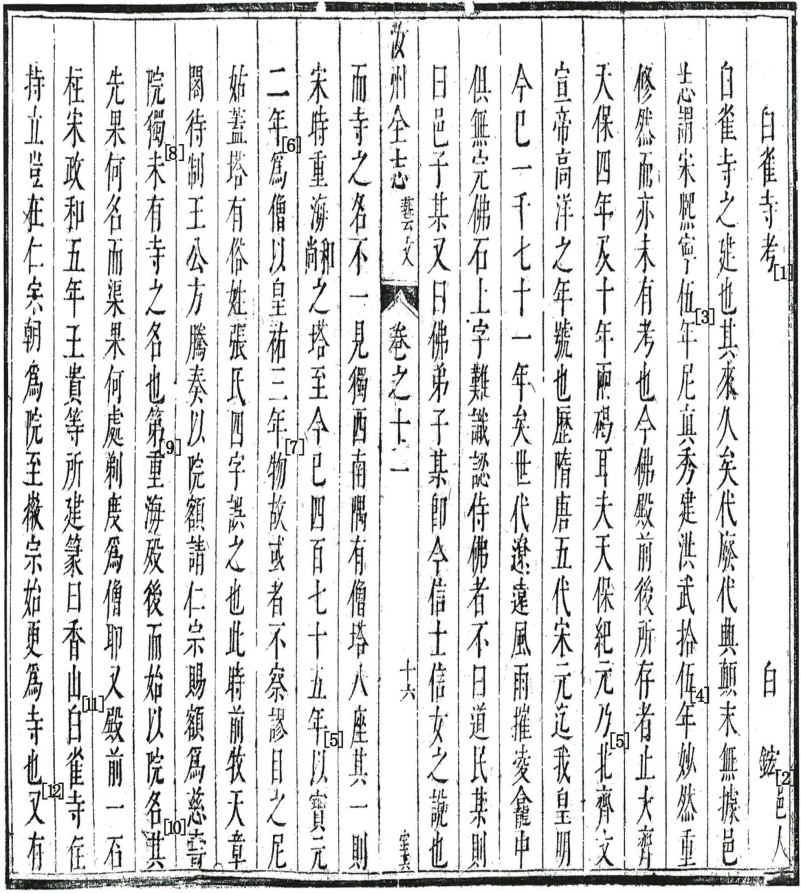 白雀寺考[1] 白鋐[2]邑人
白雀寺之建也其來久矣代廢代興顛末無據邑
志謂宋熙寧伍[3]年尼真秀建洪武拾伍[4]年妙然重
修然而亦未有考也今佛殿前後所存者止大齊
天保四年及十年兩碣耳夫天保紀元乃[5]北齊文
宣帝高洋之年號也歷隋唐五代宋元迄我皇明
今巳一千七十一年矣世代遼遠風雨摧凌龕中
俱無完佛石上字難識認侍佛者不曰道民某則
曰邑子某又曰佛弟子某卽今信士信女之說也
汝州全志 藝文 卷之十一 十六
而寺之名不一見獨西南隅有僧塔八座其一則
宋時重海和尚之塔至今巳四百七十五年[5]以寶元
二年[6]爲僧以皇祐三年[7]物故或者不察謬目之尼
姑蓋塔有俗姓張氏四字誤之也此時前牧天章
閣待制王公方騰奏以院額請仁宗賜額爲慈壽
院獨[8]未有寺之名也第[9]重海殁後而始以院名其[10]
先果何名而渠果何處剃度爲僧耶又殿前一石
柱宋政和五年王貴等所建篆曰香山[11]白雀寺住
持立豈在仁宗朝爲院至徽宗始更爲寺也[12]又有